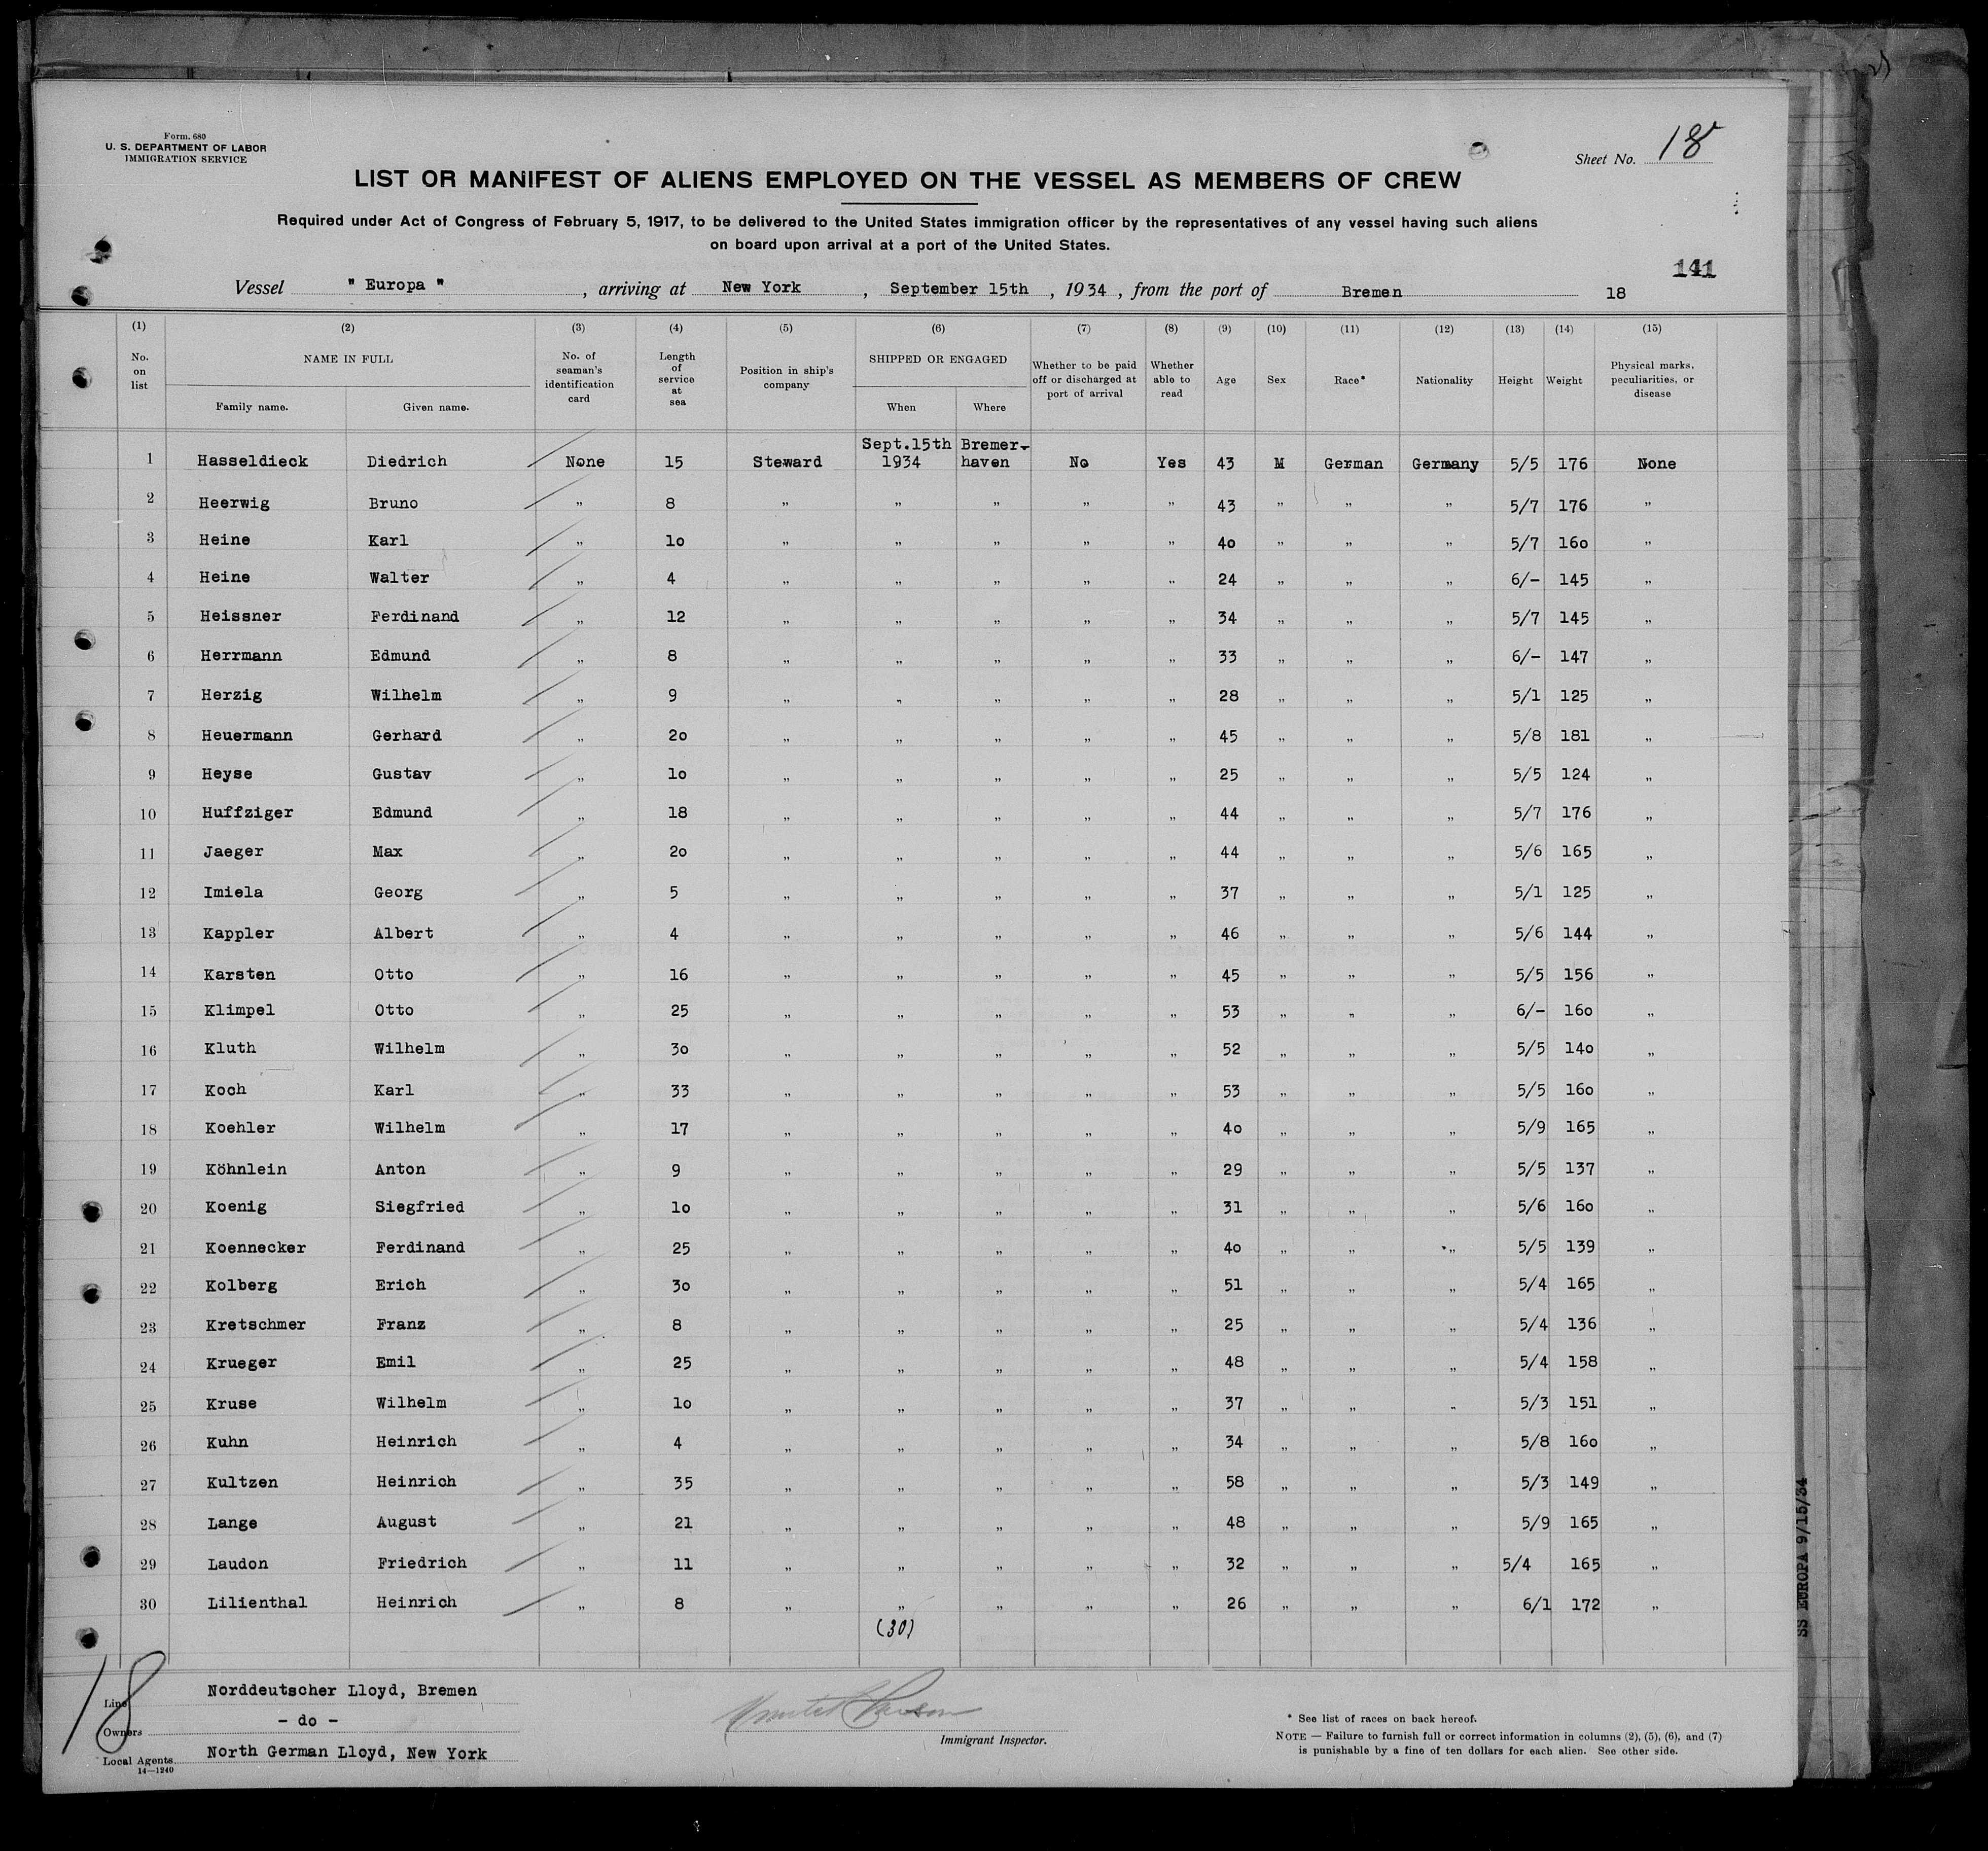 Form. 680
U. S. DEPARTMENT OF LABOR
IMMIGRATION SERVICE
Sheet No. 18
LIST OR MANIFEST OF ALIENS EMPLOYED ON THE VESSEL AS MEMBERS OF CREW
Required under Act of Congress of February 5, 1917, to be delivered to the United States immigration officer by the representatives of any vessel having such aliens
on board upon arrival at a port of the United States.
141
Vessel " Europa ", arriving at New York, September 15th, 1934, from the port of Bremen 18
(1) (2) (3) (4) (5) (6) (7) (8) (9) (10) (11) (12) (13) (14) (15)
No. on list NAME IN FULL Family name. Given name. No. of seaman's identification card Length of service at sea Position in ship's company SHIPPED OR ENGAGED When Where Whether to be paid off or discharged at port of arrival Whether able to read Age Sex Race* Nationality Height Weight Physical marks, peculiarities, or disease
1 Hasseldieck Diedrich None 15 Steward Sept.15th 1934 Bremer-haven No Yes 43 M German Germany 5/5 176 None
2 Heerwig Bruno " 8 " " " " " 43 " " " 5/7 176 "
3 Heine Karl " 1o " " " " " 4o " " " 5/7 16o "
4 Heine Walter " 4 " " " " " 24 " " " 6/- 145 "
5 Heissner Ferdinand " 12 " " " " " 34 " " " 5/7 145 "
6 Herrmann Edmund " 8 " " " " " 33 " " " 6/- 147 "
7 Herzig Wilhelm " 9 " " " " " 28 " " " 5/1 125 "
8 Heuermann Gerhard " 2o " " " " " 45 " " " 5/8 181 "
9 Heyse Gustav " 1o " " " " " 25 " " " 5/5 124 "
10 Huffziger Edmund " 18 " " " " " 44 " " " 5/7 176 "
11 Jaeger Max " 2o " " " " " 44 " " " 5/6 165 "
12 Imiela Georg " 5 " " " " " 37 " " " 5/1 125 "
13 Kappler Albert " 4 " " " " " 46 " " " 5/6 144 "
14 Karsten Otto " 16 " " " " " 45 " " " 5/5 156 "
15 Klimpel Otto " 25 " " " " " 53 " " " 6/- 16o "
16 Kluth Wilhelm " 3o " " " " " 52 " " " 5/5 14o "
17 Koch Karl " 33 " " " " " 53 " " " 5/5 16o "
18 Koehler Wilhelm " 17 " " " " " 4o " " " 5/9 165 "
19 Köhnlein Anton " 9 " " " " " 29 " " " 5/5 137 "
20 Koenig Siegfried " 1o " " " " " 31 " " " 5/6 16o "
21 Koennecker Ferdinand " 25 " " " " " 4o " " " 5/5 139 "
22 Kolberg Erich " 3o " " " " " 51 " " " 5/4 165 "
23 Kretschmer Franz " 8 " " " " " 25 " " " 5/4 136 "
24 Krueger Emil " 25 " " " " " 48 " " " 5/4 158 "
25 Kruse Wilhelm " 1o " " " " " 37 " " " 5/3 151 "
26 Kuhn Heinrich " 4 " " " " " 34 " " " 5/8 16o "
27 Kultzen Heinrich " 35 " " " " " 58 " " " 5/3 149 "
28 Lange August " 21 " " " " " 48 " " " 5/9 165 "
29 Laudon Friedrich " 11 " " " " " 32 " " " 5/4 165 "
30 Lilienthal Heinrich " 8 " " " " " 26 " " " 6/1 172 "
(30)
18
Line Norddeutscher Lloyd, Bremen
Owners - do -
Local Agents North German Lloyd, New York
14—1240
Immigrant Inspector.
* See list of races on back hereof.
NOTE — Failure to furnish full or correct information in columns (2), (5), (6), and (7)
is punishable by a fine of ten dollars for each alien. See other side.
SS EUROPA 9/15/34